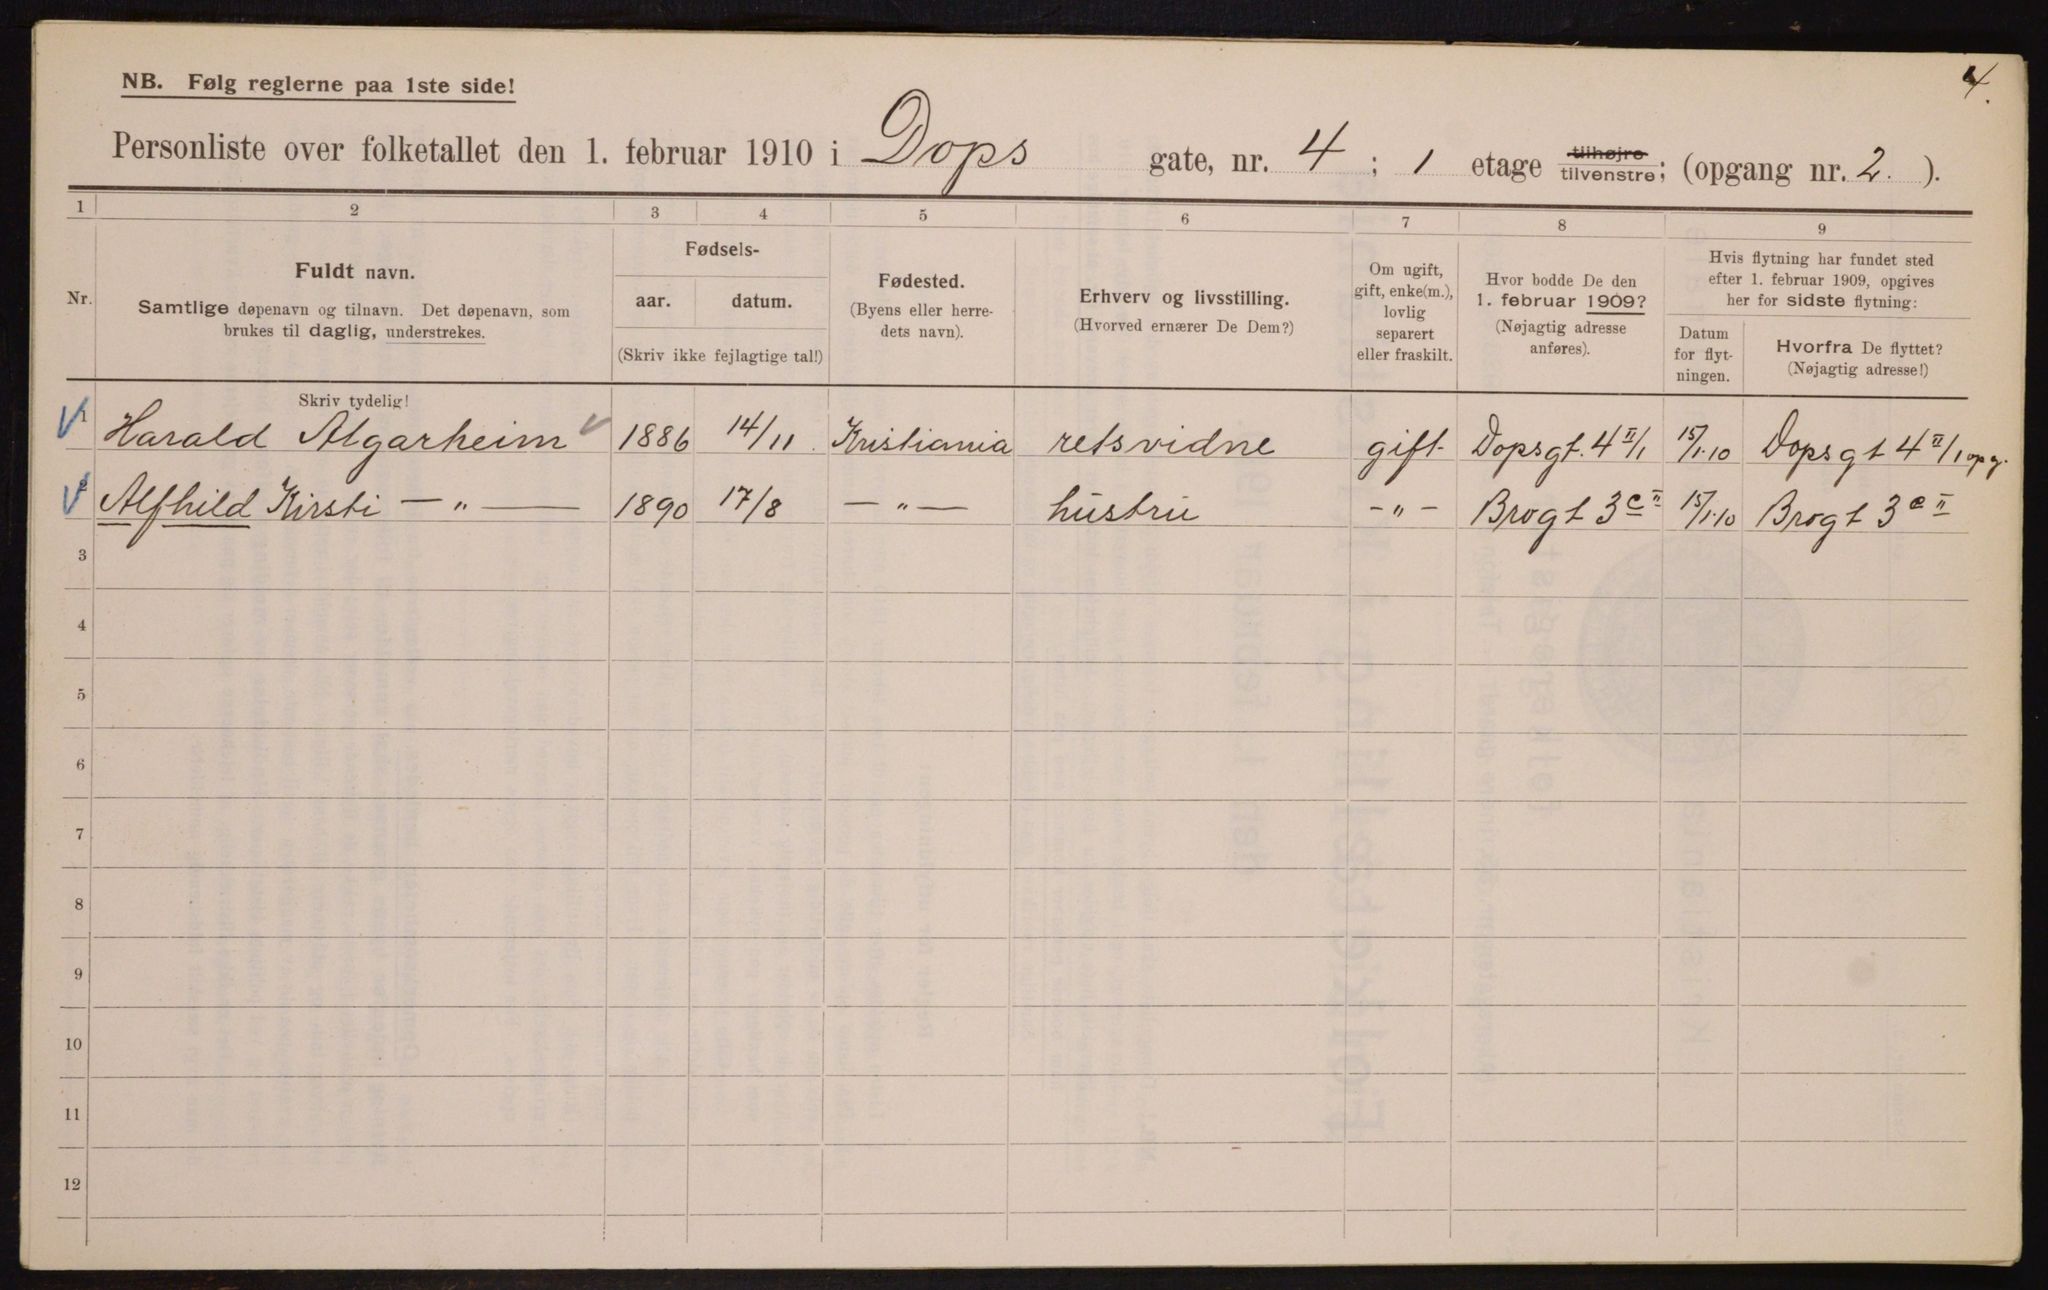 4.
NB. Følg reglerne paa 1ste side!
Personliste over folketallet den 1. februar 1910 i Dops gate, nr. 4 ; 1 etage tilhøjre tilvenstre; (opgang nr. 2. ).
1 2 3 4 5 6 7 8 9
Nr.
Fuldt navn.
Samtlige døpenavn og tilnavn. Det døpenavn, som
brukes til daglig, understrekes.
Fødsels-
aar. datum.
(Skriv ikke fejlagtige tal!)
Fødested.
(Byens eller herre-
dets navn).
Erhverv og livsstilling.
(Hvorved ernærer De Dem?)
Om ugift,
gift, enke(m.),
lovlig
separert
eller fraskilt.
Hvor bodde De den
1. februar 1909?
(Nøjagtig adresse
anføres).
Hvis flytning har fundet sted
efter 1. februar 1909, opgives
her for sidste flytning:
Datum
for flyt-
ningen.
Hvorfra De flyttet?
(Nøjagtig adresse!)
Skriv tydelig!
1 Harald Algarheim 1886 14/11 Kristiania retsvidne gift Dopsgt. 4 II/1 15/1.10 Dopsgt 4 II/1 opg.
2 Alfhild Kirsti — " — 1890 17/8 — " — hustru - " - Brogt 3 c II 15/1.10 Brogt 3 c II
3
4
5
6
7
8
9
10
11
12